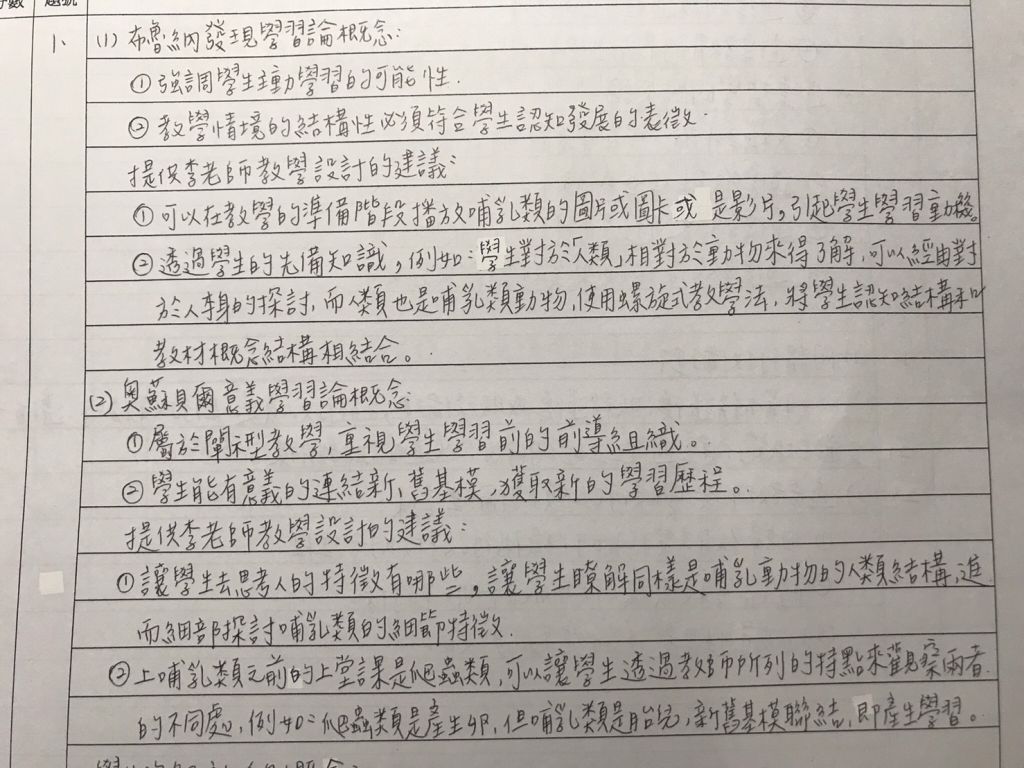 題號
1、(1) 布魯納發現學習論概念：
① 強調學生主動學習的可能性.
② 教學情境的結構性必須符合學生認知發展的表徵.
提供李老師教學設計的建議：
① 可以在教學的準備階段播放哺乳類的圖片或圖卡或是影片,引起學生學習動機。
② 透過學生的先備知識,例如：學生對於「人類」相對於動物來得了解,可以經由對
於人本身的探討,而人類也是哺乳類動物,使用螺旋式教學法,將學生認知結構和
教材概念結構相結合。
(2) 奧蘇貝爾意義學習論概念:
① 屬於闡釋型教學,重視學生學習前的前導組織。
② 學生能有意義的連結新、舊基模,獲取新的學習歷程。
提供李老師教學設計的建議：
① 讓學生去思考人的特徵有哪些,讓學生瞭解同樣是哺乳動物的人類結構,進
而細部探討哺乳類的細節特徵.
② 上哺乳類之前的上堂課是爬蟲類,可以讓學生透過教師所列的特點來觀察兩者
的不同處,例如：爬蟲類是產生卵,但哺乳類是胎兒,新舊基模聯結,即產生學習。